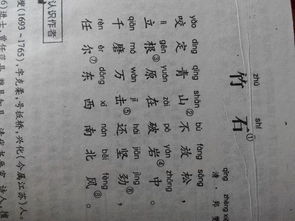 zhú shí
竹石①
清·郑燮
yǎo dìng qīng shān bú fàng sōng
咬定青山不放松，
lì gēn yuán zài pò yán zhōng
立根②原在破岩③中。
qiān mó wàn jī hái jiān jìng
千磨④万击⑤还坚劲⑥，
rèn ěr dōng xī nán běi fēng
任尔⑦东西南北风⑧。
认识作者
燮(1693~1765)，字克柔，号板桥，兴化(今属江苏)人。
6)进士，曾任范县、潍县知县